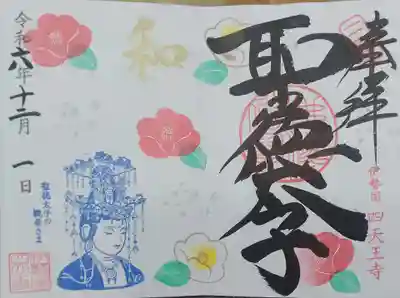 奉拝
伊勢国 四天王寺
聖徳太子
和
令和六年十二月一日
聖徳太子の
観音さま